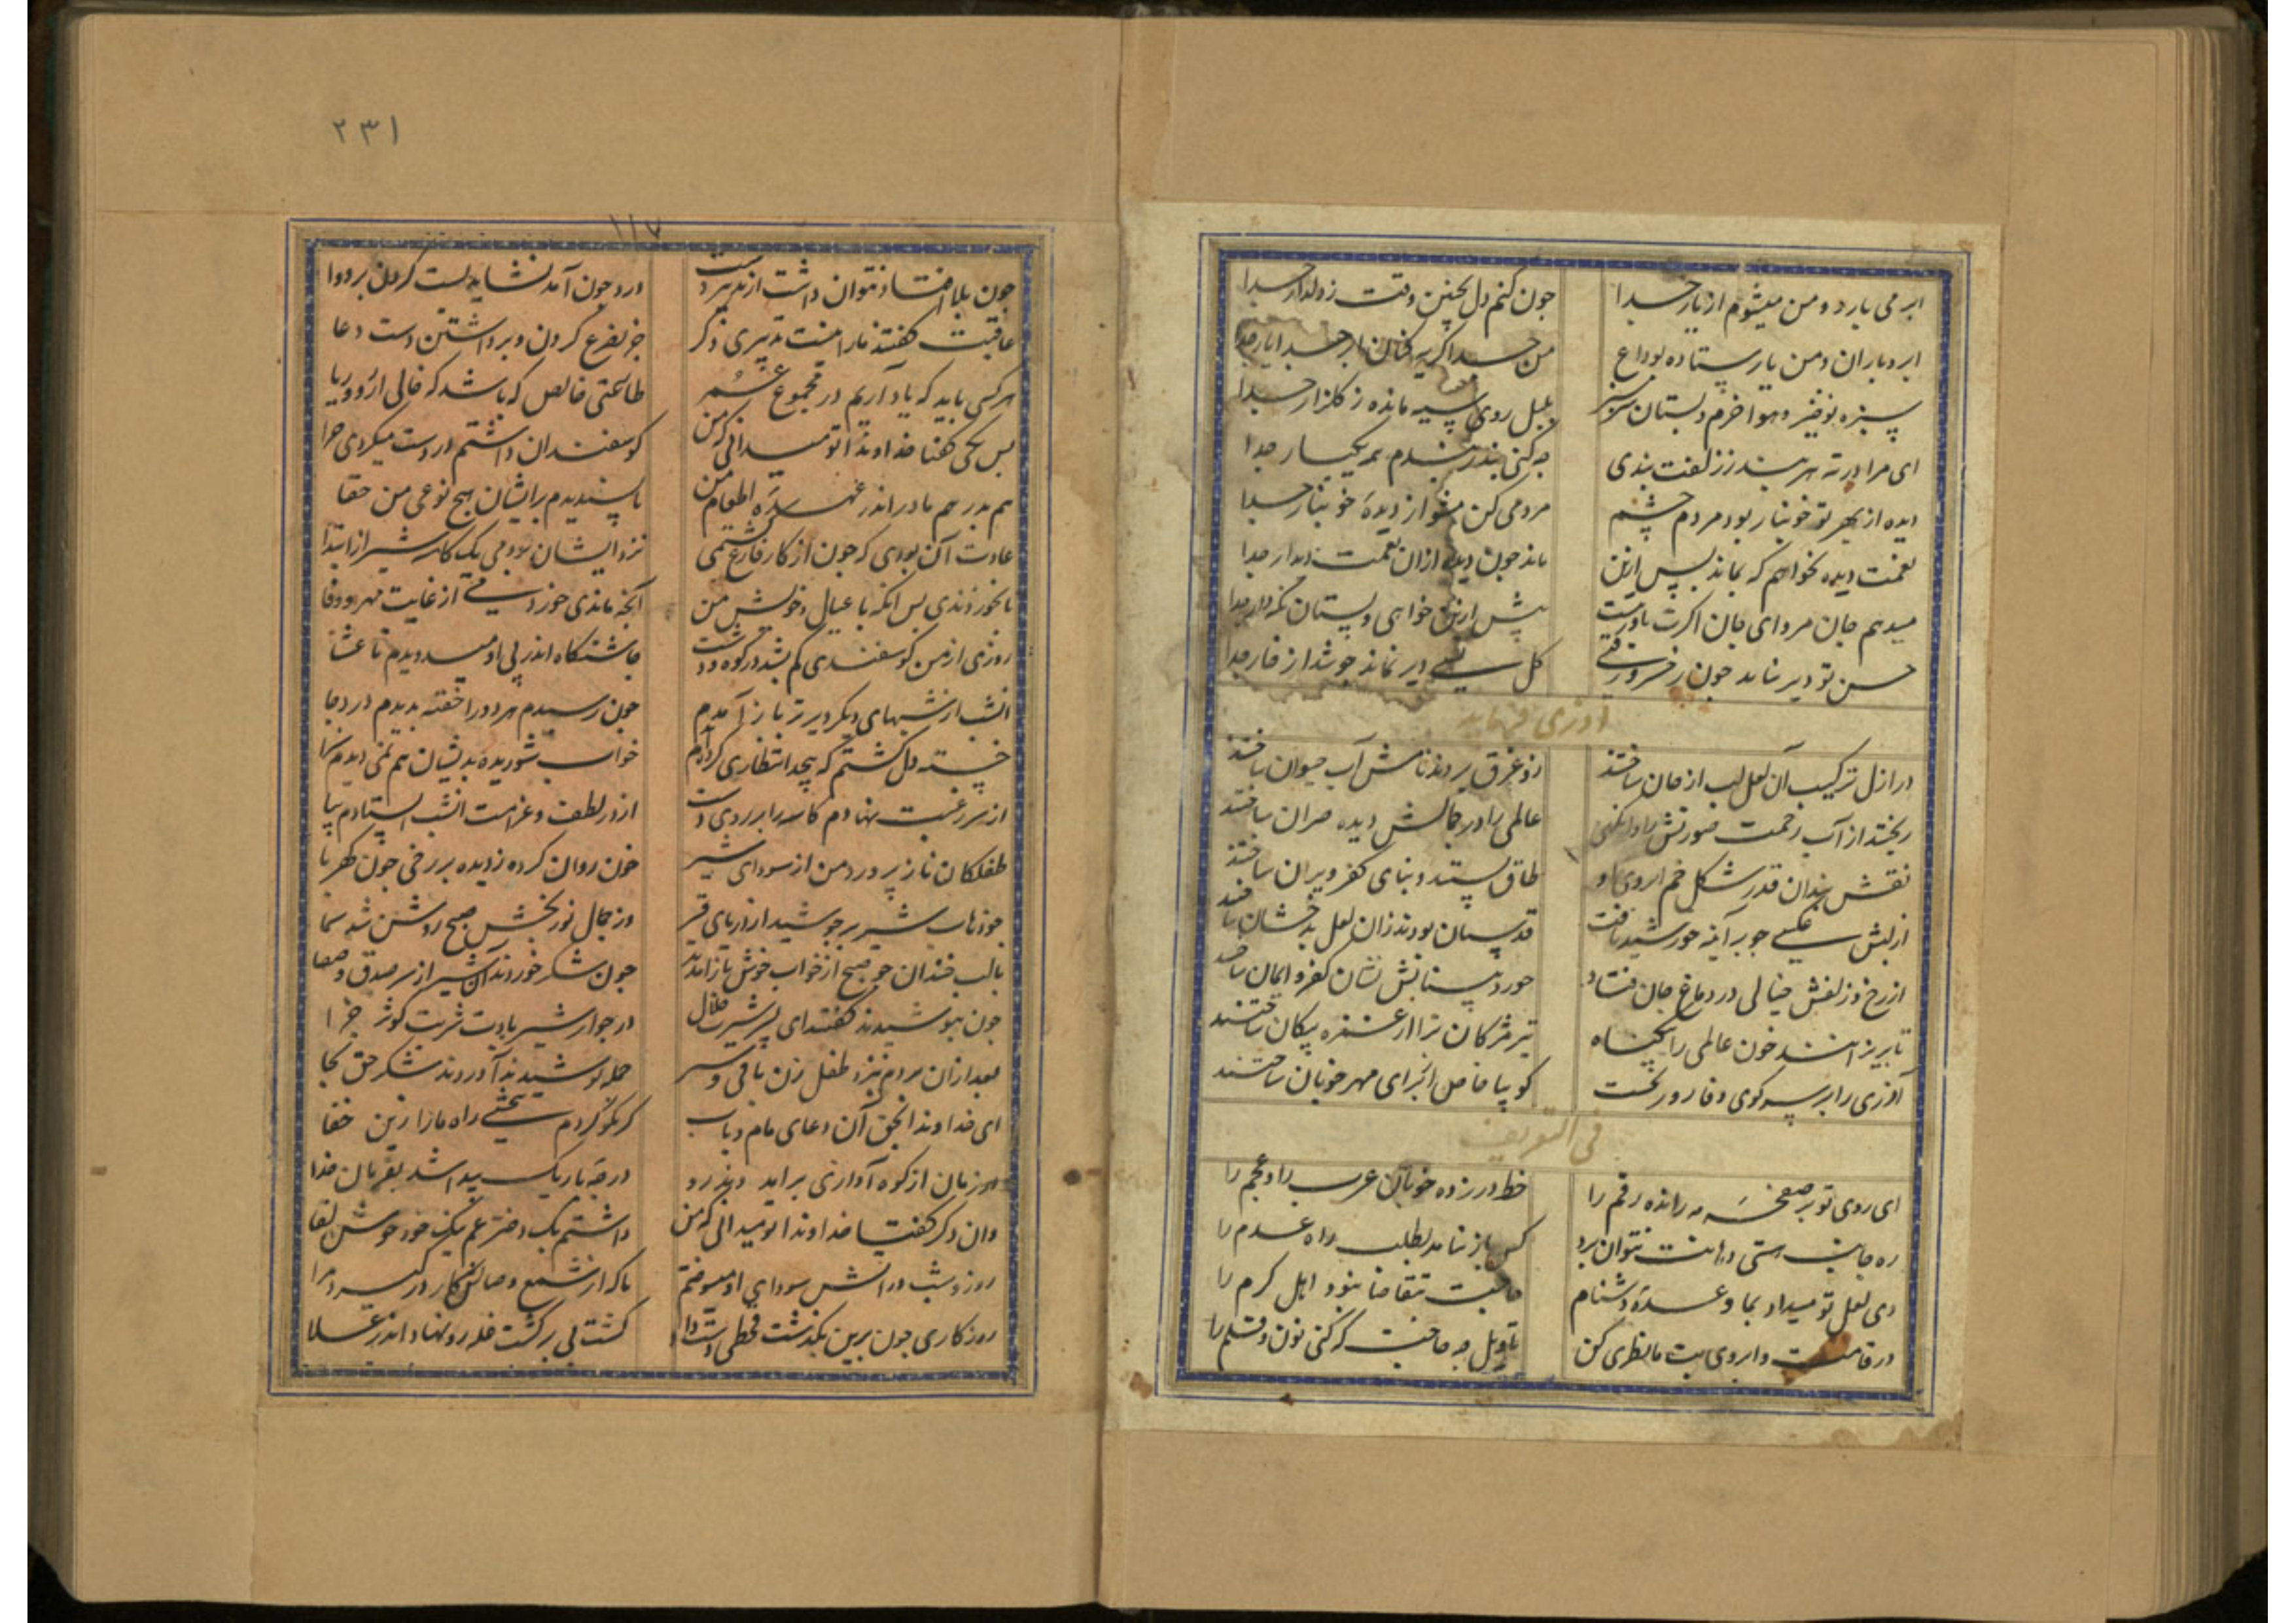 ابر می بارد و من میشوم از یار جدا
چون کنم دل بچنین وقت ز دلدار جدا
ابر و باران و من و یار ستاده بوداع
من جدا گریه کنان ابر جدا یار جدا
سبزه نوخیز و هوا خرم و بستان سرسبز
بلبل روی سیه مانده ز گلزار جدا
ای مرا در ته هر بند ز زلفت بندی
چه کنی بند ز بندم همه یکبار جدا
دیده از بهر تو خونبار بود مردم چشم
مردمی کن مشو از دیده خونبار جدا
نعمت دیده نخواهم که بماند پس ازین
ماند چون دیده ازان نعمت دیدار جدا
میدهم جان مرو ای جان اگرت باور نیست
پیش ازین خواهی و بستان نگه دار جدا
حسن تو دیر نپاید چون ز خسرو رفتی
گل بسی دیر نماند چو شد از خار جدا
آذری فرماید
در ازل ترکیب آن لعل لب از جان ساختند
ریختند از آب رحمت صورتش را و انگهی
عالمی را در جمالش دیده حیران ساختند
نقش بندان قدر شکل خم ابروی او
طاق بستند و بنای کفر ویران ساختند
از لبش عکسی چو بر آینه خورشید تافت
قدسیان بودند زان لعل بدخشان ساختند
از رخ و زلفش خیالی در دماغ جان فتاد
تا بریزانند خون عالمی را بیگناه
تیر مژگان ترا از غمزه پیکان ساختند
آذری را بر سر کوی وفا روز نخست
گوییا خاص از برای مهر خوبان ساختند
فی التعریف
ای روی تو بر صفحه مه رانده رقم را
خط در زده خوبان عرب را و عجم را
ره جانب هستی دهانت نتوان برد
کس باز نیامد بطلب راه عدم را
دی لعل تو میداد بما وعده دشنام
حاجت بتقاضا نبود اهل کرم را
در قامت و ابروی بت ما نظری کن
تاویل چه حاجت که کنی نون و قلم را
۲۳۱
۱۱۷
چون بلا افتاد نتوان داشت از تدبیر دست
درد چون آمد نشاید بست گردن بر دوا
عاقبت گفتند ما را نیست تدبیری دگر
جز تضرع کردن و برداشتن دست دعا
هر کسی باید که یاد آریم در مجموع عمر
طاعتی خالص که باشد که خالی از ریا
پس یکی گفتا خداوندا تو میدانی که من
گوسفندان داشتم
هم پدر هم مادر اندر عهده اطعام من
ناپسندیدم برایشان هیچ نوعی من جفا
عادت آن بودی که چون از کار فارغ گشتمی
نزد ایشان بودمی یک کاسه شیر از ابتدا
تا بخوردندی پس آنگه با عیال و خویش من
آنچه ماندی خوردمی از غایت مهر و وفا
روزی از من گوسفندی گم بشد در کوه و دشت
چاشتگاه اندر پی او میدویدم تا عشا
آنشب از شبهای دیگر دیرتر باز آمدم
چون رسیدم هر دو را خفته بدیدم در دجا
خسته دل گشتم که بیحد انتظاری کرده‌ام
از سر رغبت نهادم کاسه را بر روی دست
طفلکان نازپرورد من از سودای شیر
خون روان کرده ز دیده بر رخی چون کهربا
وز جمال نوربخش صبح روشن شد سما
با لب خندان چو صبح از خواب خوش باز آمدند
چون شکر خوردند آن شیر از سر صدق و صفا
چون بنوشیدند گفتند ای پسر شیر حلال
در جوار شیر بادت شربت کوثر جزا
بعد ازان بردم بنزد طفل و زن باقی شیر
جمله نوشیدند آوردند شکر حق بجا
ای خداوندا بحق آن دعای مام و باب
گر نکو کردم ببخشی راه ما را زین خفا
در زمان از کوه آوازی برآمد
وان دگر گفتا خداوندا تو میدانی که من
داشتم یک دختر عم نیک خو خوش لقا
روز و شب در آتش سودای او میسوختم
روزگاری چون برین بگذشت قحطی دست داد